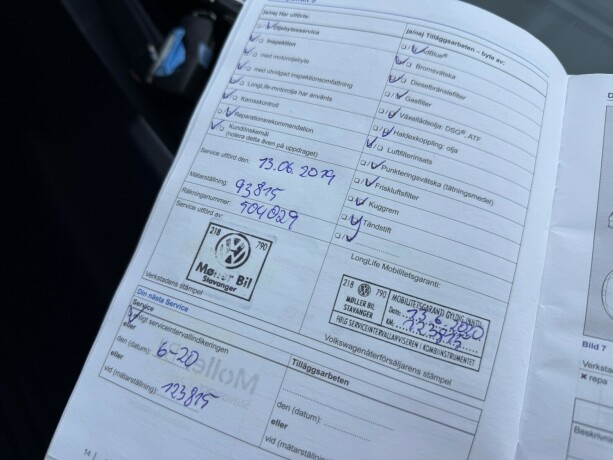 ja/nej Har utförts:
Oljebytesservice
Inspektion
med motoroljebyte
med utvidgad inspektionsomfattning
LongLife-motorolja har använts
Karosskontroll
Reparationsrekommendation
Kundönskemål
(notera detta även på uppdraget)
Service utförd den: 13.06.2019
Mätarställning: 93815
Räkningsnummer: 904029
Service utförd av:
218 790
Møller Bil
Stavanger
Verkstadens stämpel
ja/nej Tilläggsarbeten – byte av:
AdBlue®
Bromsvätska
Dieseltransfilter
Gasfilter
Växellådsolja: DSG®, ATF
Haldexkoppling: olja
Luftfilterinsats
Punkteringsvätska (tätningsmedel)
Friskluftsfilter
Kuggrem
Tändstift
LongLife Mobilitetsgaranti:
218 790
MØLLER BIL
STAVANGER
MOBILITETSGARANTI GYLDIG INNTIL
Dato: 13.6.2020
KM: 123815
FØLG SERVICEINTERVALLANVISEREN I KOMBIINSTRUMENTET
Volkswagenåterförsäljarens stämpel
Din nästa Service
Service
Enligt serviceintervallindikeringen
eller
den (datum): 6-20
eller
vid (mätarställning): 123815
Tilläggsarbeten
den (datum):
eller
vid (mätarställning)
14
Bild 7
Verksta
× repa
Beskrivn